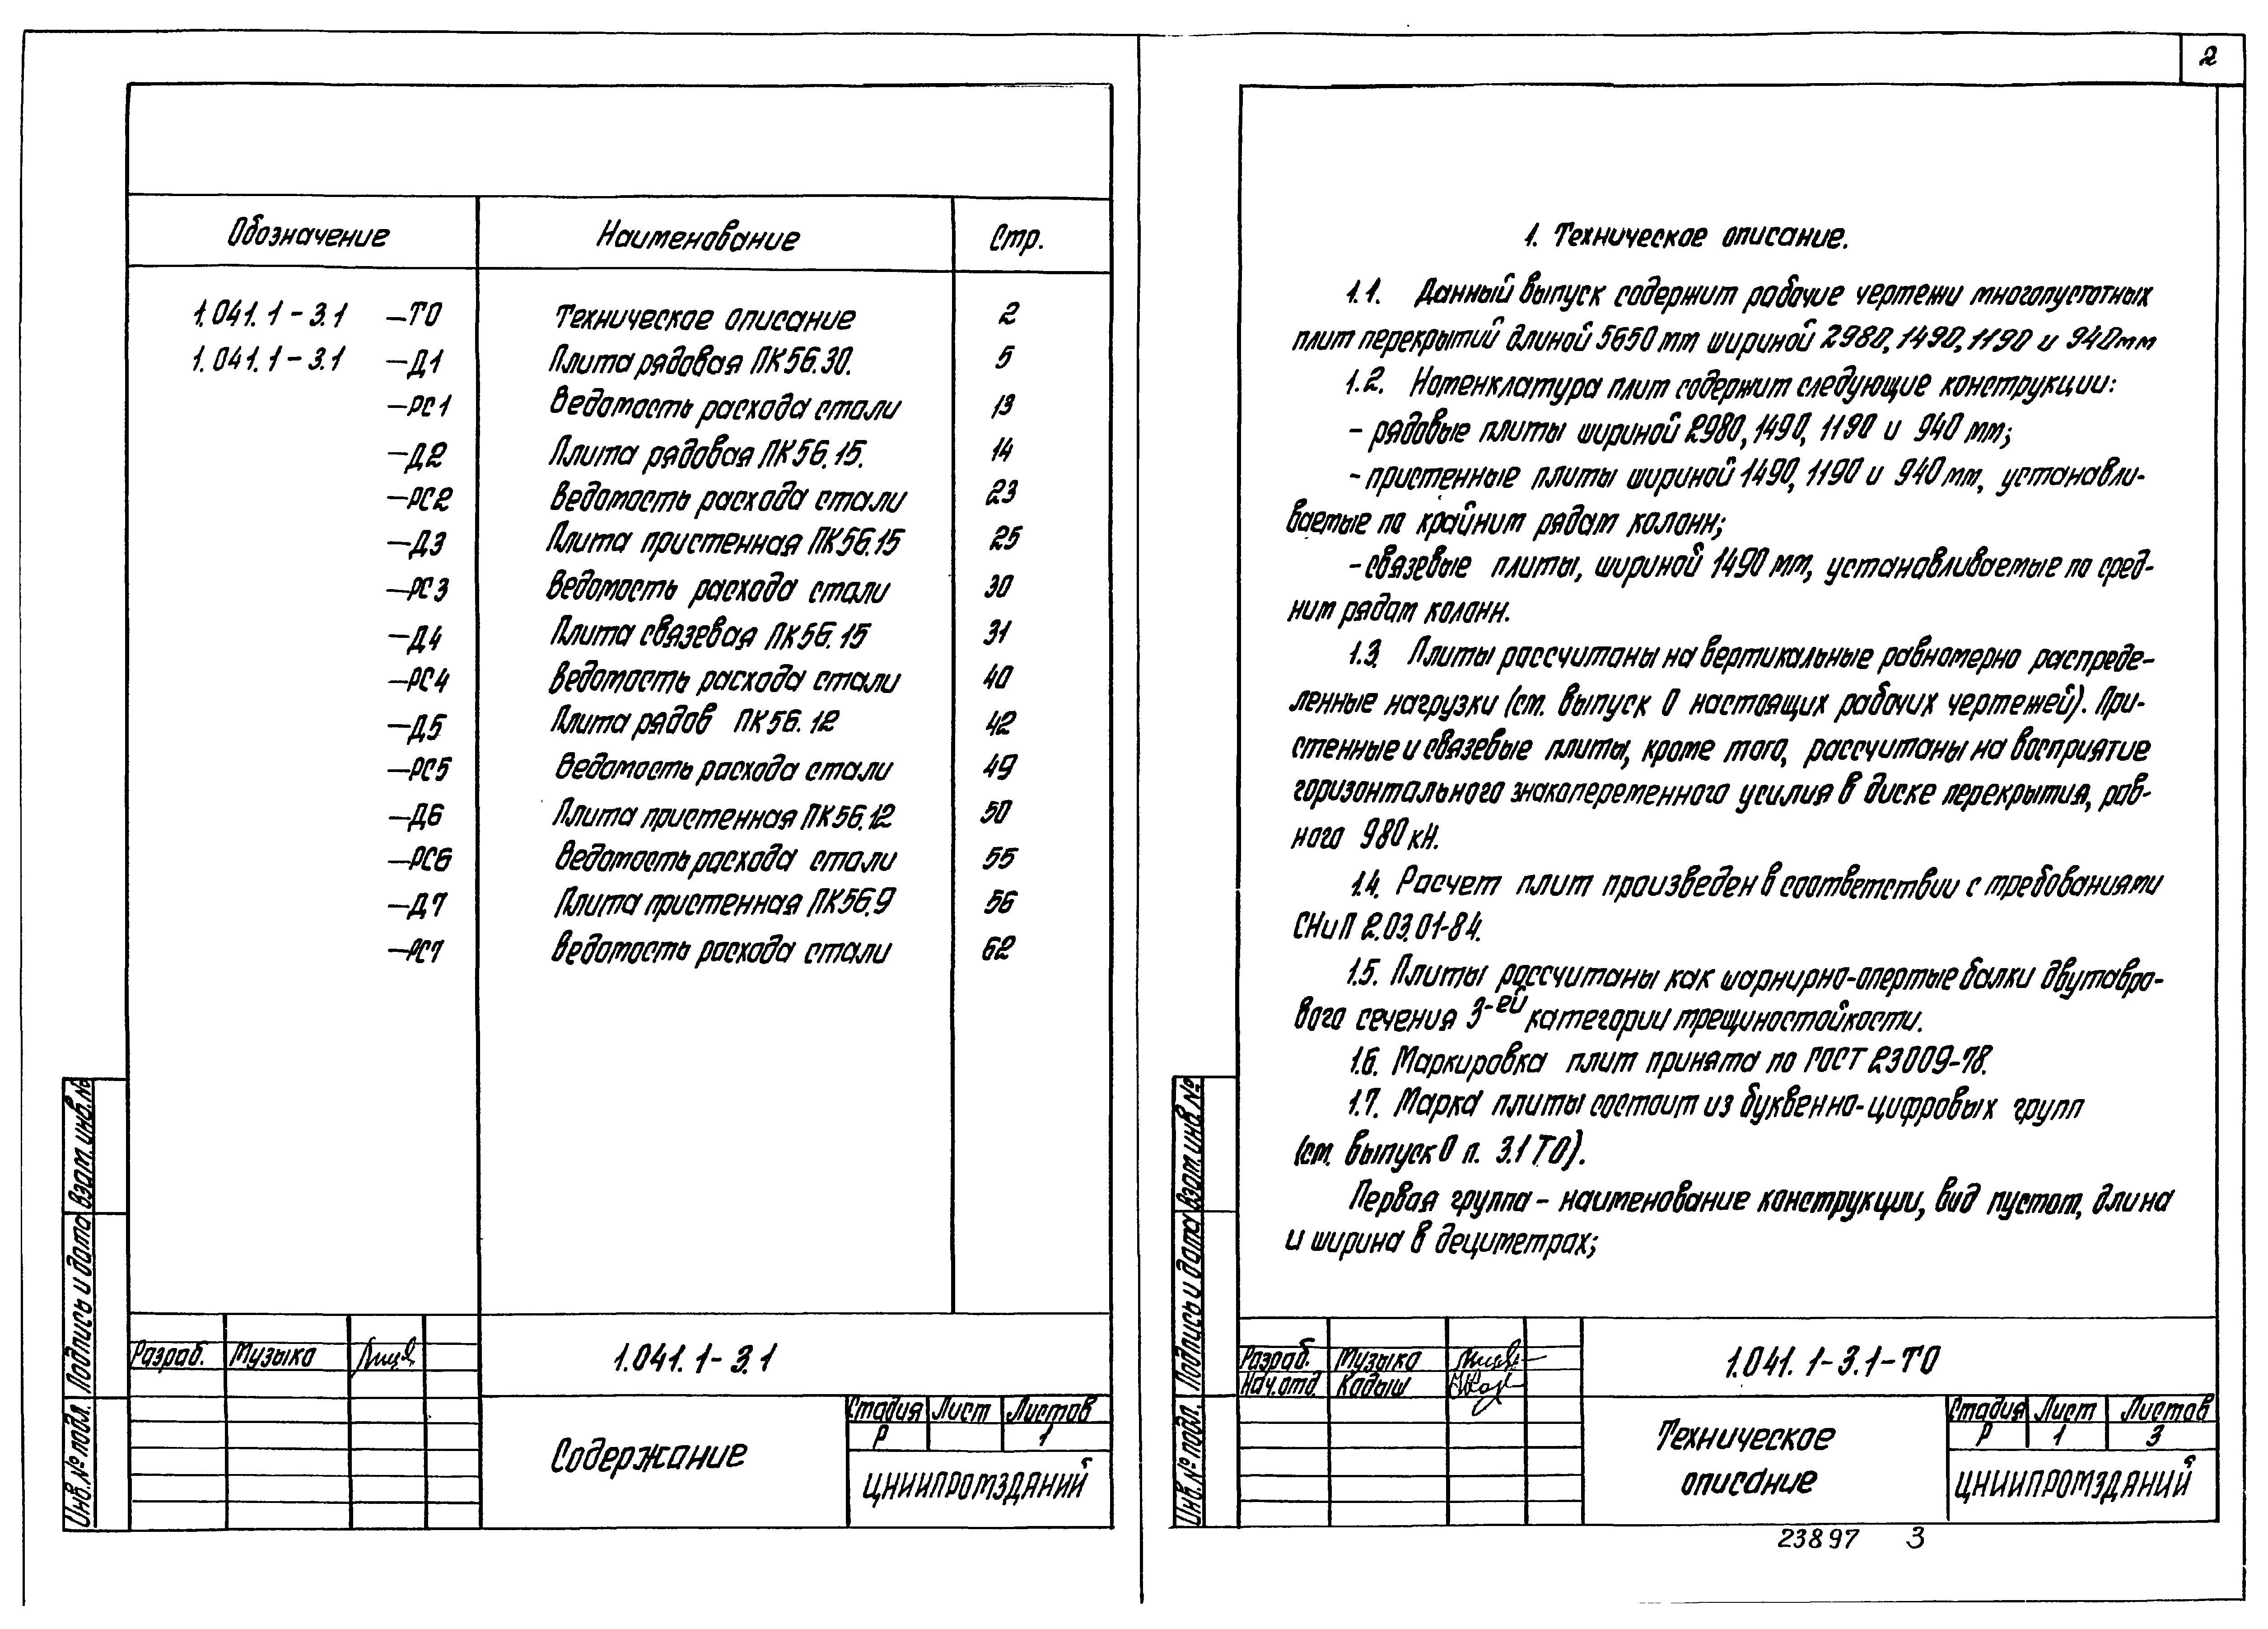 2
Обозначение Наименование Стр.
1.041.1-3.1 -ТО Техническое описание 2
1.041.1-3.1 -Д1 Плита рядовая ПК56.30. 5
-РС1 Ведомость расхода стали 13
-Д2 Плита рядовая ПК56.15. 14
-РС2 Ведомость расхода стали 23
-Д3 Плита пристенная ПК56.15 25
-РС3 Ведомость расхода стали 30
-Д4 Плита связевая ПК56.15 31
-РС4 Ведомость расхода стали 40
-Д5 Плита рядов ПК56.12 42
-РС5 Ведомость расхода стали 49
-Д6 Плита пристенная ПК56.12 50
-РС6 Ведомость расхода стали 55
-Д7 Плита пристенная ПК56.9 56
-РС7 Ведомость расхода стали 62
Взам. инв. №
Подпись и дата
Инв. № подл.
Разраб. Музыка
1.041.1-3.1
Содержание
Стадия Лист Листов
Р 1
ЦНИИПРОМЗДАНИЙ
1. Техническое описание.
1.1. Данный выпуск содержит рабочие чертежи многопустотных
плит перекрытий длиной 5650 мм шириной 2980, 1490, 1190 и 940 мм
1.2. Номенклатура плит содержит следующие конструкции:
- рядовые плиты шириной 2980, 1490, 1190 и 940 мм;
- пристенные плиты шириной 1490, 1190 и 940 мм, устанавли-
ваемые по крайним рядам колонн;
- связевые плиты, шириной 1490 мм, устанавливаемые по сред-
ним рядам колонн.
1.3. Плиты рассчитаны на вертикальные равномерно распреде-
ленные нагрузки (см. выпуск 0 настоящих рабочих чертежей). При-
стенные и связевые плиты, кроме того, рассчитаны на восприятие
горизонтального знакопеременного усилия в диске перекрытия, рав-
ного 980 кН.
1.4. Расчет плит произведен в соответствии с требованиями
СНиП 2.03.01-84.
1.5. Плиты рассчитаны как шарнирно-опертые балки двутавро-
вого сечения 3-ей категории трещиностойкости.
1.6. Маркировка плит принята по ГОСТ 23009-78.
1.7. Марка плиты состоит из буквенно-цифровых групп
(см. выпуск 0 п. 3.1 ТО).
Первая группа - наименование конструкции, вид пустот, длина
и ширина в дециметрах;
Взам. инв. №
Подпись и дата
Инв. № подл.
Разраб. Музыка
Нач.отд. Кадыш
1.041.1-3.1-ТО
Техническое
описание
Стадия Лист Листов
Р 1 3
ЦНИИПРОМЗДАНИЙ
23897 3